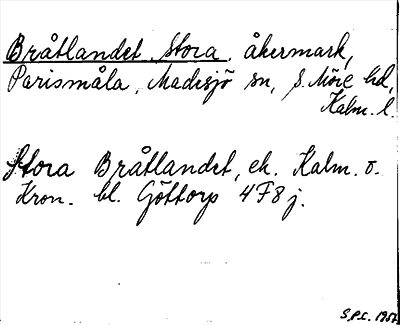 Bråtlandet, Stora, åkermark,
Parismåla, Madesjö sn, S. Möre hd,
Kalm. l.
Stora Bråtlandet, ek. Kalm. o.
Kron. bl. Göttorp 4F8j.
S.P.C. 1957